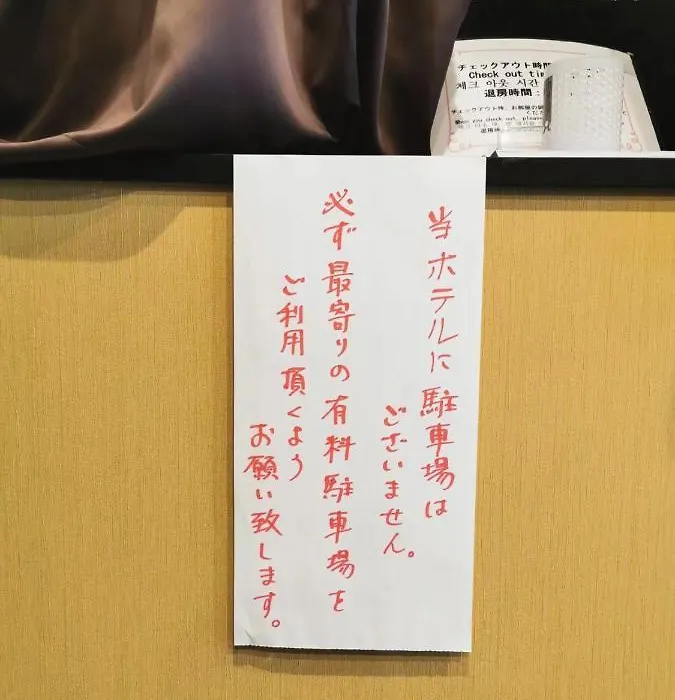 当ホテルに駐車場は
ございません。
必ず最寄りの有料駐車場を
ご利用頂くよう
お願い致します。
チェックアウト時間
Check out tim
체크 아웃 시간
退房時間:
チェックアウト時、お部屋の
くだ
When you check out, please